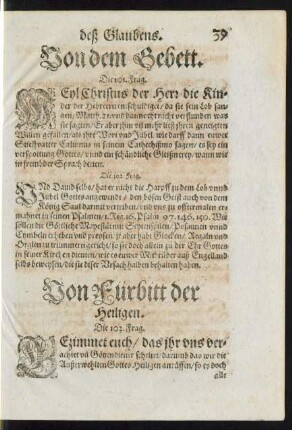 deß Glaubens. 39
Von dem Gebett.
Die 101. Frag.
WEyl Christus der Herr die Kin-
der der Hebreer entschuldiget / da sie sein Lob san-
gen / Matth. 21. vnd dannocht nit verstunden was
sie sagten / Er aber jhm
Wolgefallen / ab jhrer Wort vnd Jubel wie darff dann ewer
Stieffvatter Caluinus in seinem Cathechismo sagen / es sey ein
verspottung Gottes / vnnd ein schändliche Gleißnerey / wann wir
in frembder Sprach betten.
Die 102. Frag.
VNd Dauid selbs / hat er nicht die Harpff zu dem Lob vnnd
Jubel Gottes angewendt / den bösen Geist auch von dem
König Saul darmit vertriben / vnd vns zu offtermalen er-
mahnet in seinen Psalmen / 1. Reg. 16. Psalm 97. 146. 150. Wir
sollen die Göttliche Mayestät mit Seytenspilen / Posaunen vnnd
Cymbeln
Orglen zu trümmern gericht / so sie doch allein zu der Ehr Gottes
in seiner Kirchen dienen / wie es ewer Mitbrüder auß Engelland
selbs beweysen / die sie diser Vrsach halben behalten haben.
Von Fürbitt der
Heiligen.
Die 103. Frag.
BEzimmet euch / das jhr vns ver-
achtet vnd Götzendiener scheltet / darumb das wir die
Außerwehlten Gottes Heiligen anrüffen / so es doch
alle